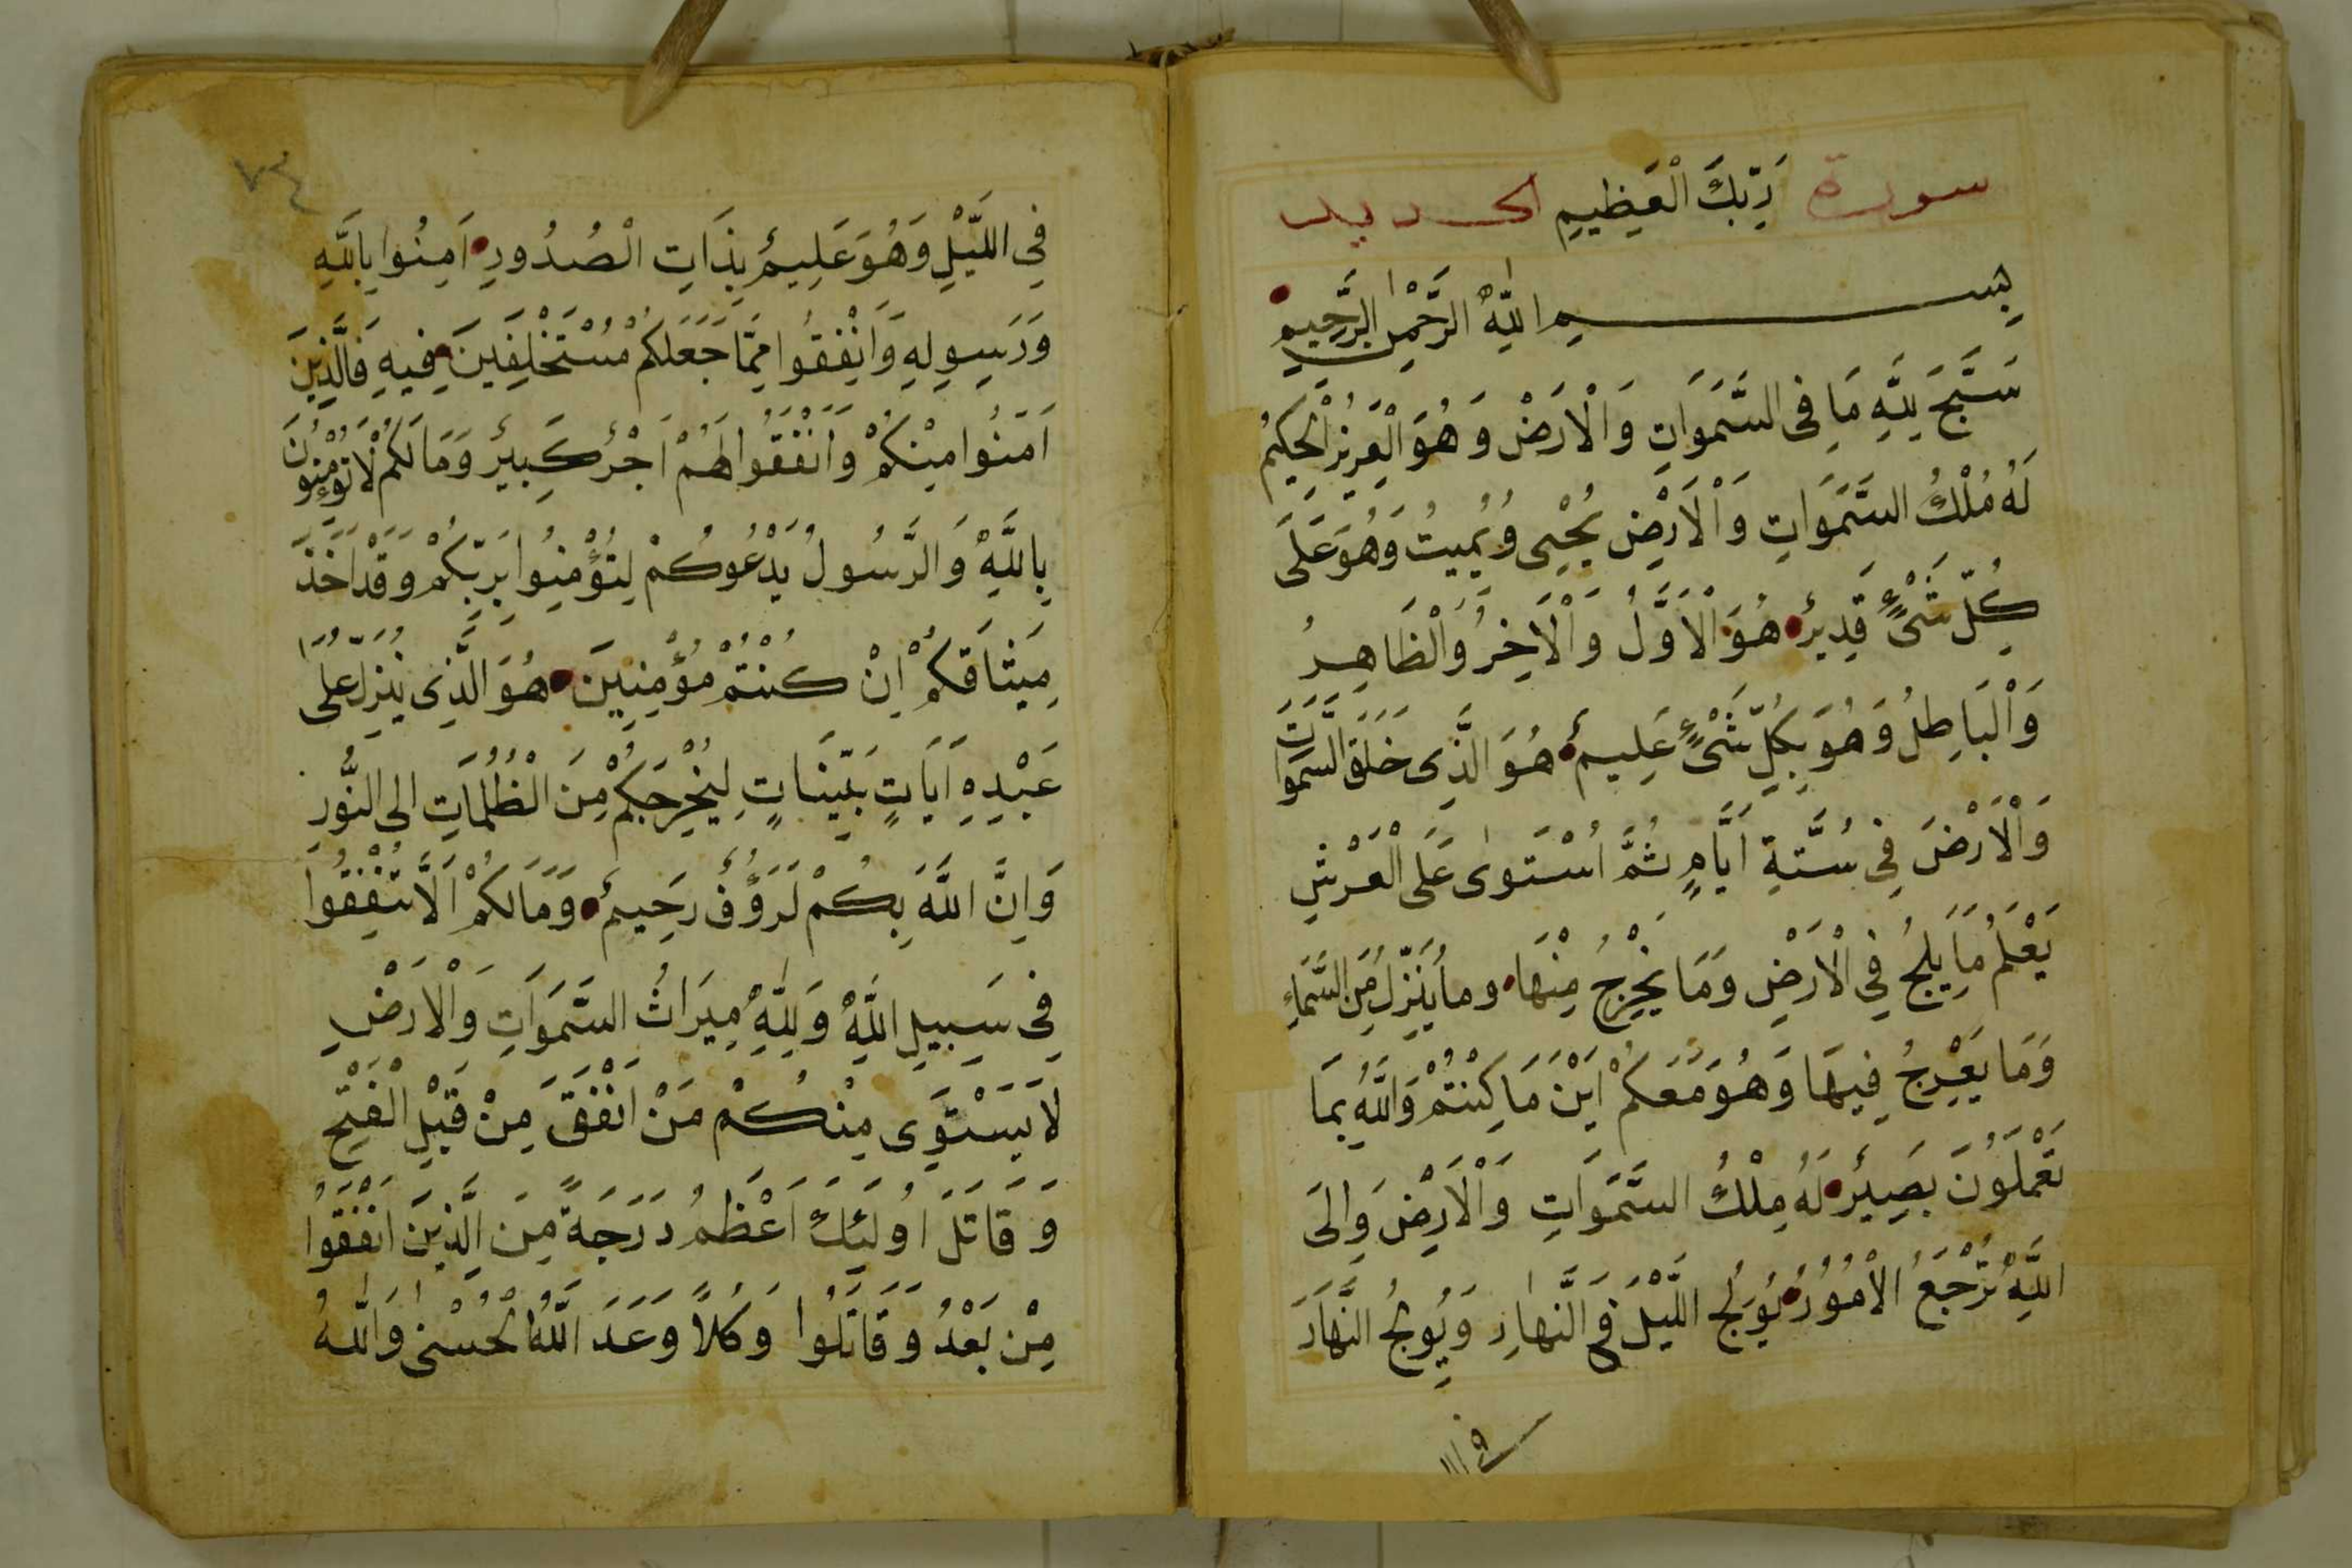 سورة رَبِّكَ الْعَظِيمِ الحديد
بِسْمِ اللَّهِ الرَّحْمٰنِ الرَّحِيمِ
سَبَّحَ لِلَّهِ مَا فِى السَّمَوَاتِ وَالْاَرْضِ وَهُوَ الْعَزِيزُ الْحَكِيمُ
لَهُ مُلْكُ السَّمَوَاتِ وَالْاَرْضِ يُحْيِى وَيُمِيتُ وَهُوَ عَلَى
كُلِّ شَىْءٍ قَدِيرٌ هُوَ الْاَوَّلُ وَالْاَخِرُ وَالْظَاهِرُ
وَالْبَاطِلُ وَهُوَ بِكُلِّ شَىْءٍ عَلِيمٌ هُوَ الَّذِى خَلَقَ السَّمَوَاتِ
وَالْاَرْضَ فِى سِتَّةِ اَيَّامٍ ثُمَّ اسْتَوٰى عَلَى الْعَرْشِ
يَعْلَمُ مَا يَلِجُ فِى الْاَرْضِ وَمَا يَخْرِجُ مِنْهَا وما يُنَزِّلُ مِنَ السَّمَاءِ
وَمَا يَعْرِجُ فِيهَا وَهُوَ مَعَكُمْ اَيْنَ مَا كُنْتُمْ وَاللَّهُ بِمَا
تَعْمَلُونَ بَصِيرٌ لَهُ مُلْكُ السَّمَوَاتِ وَالْاَرْضِ وَاِلَى
اللَّهِ تُرْجَعُ الْاُمُورُ يُولِجُ اللَّيْلَ فِى النَّهَارِ وَيُولِجُ النَّهَارَ
فى ال
٧٣٤
فِى اللَّيْلِ وَهُوَ عَلِيمٌ بِذَاتِ الْصُدُورِ اَمِنُوا بِاللَّهِ
وَرَسِولِهِ وَاَنْفِقُوا مِمَّا جَعَلَكُمْ مُسْتَخْلِفَينَ فِيهِ فَالَّذِينَ
اَمَنُوا مِنْكُمْ وَاَنْفَقُوا لَهُمْ اَجْرٌ كَبِيرٌ وَمَا لَكُمْ لَا تُؤْمِنُونَ
بِاللَّهِ وَالرَّسُولُ يَدْعُوكُمْ لِتُؤْمِنُوا بِرَبِّكُمْ وَقَدْ اَخَذَ
مِيثَاقَكُمْ اِنْ كُنْتُمْ مُؤْمِنِينَ هُوَ الَّذِى يُنَزِّلُ عَلَى
عَبْدِهِ اَيَاتٍ بَيِّنَاتٍ لِيُخْرِجَكُمْ مِنَ الْظُلُمَاتِ اِلى النُّورِ
وَاِنَّ اللَّهَ بِكُمْ لَرَؤُفٌ رَحِيمٌ وَمَا لَكُمْ اَلَّا تُنْفِقُوا
فِى سَبِيلِ اللَّهِ وَلِلَّهِ مِيرَاثُ السَّمَوَاتِ وَالْاَرْضِ
لَا يَسْتَوِى مِنْكُمْ مَنْ اَنْفَقَ مِنْ قَبْلِ الْفَتْحِ
وَقَاتَلَ اُولَئِكَ اَعْظَمُ دَرَجَةً مِنَ الَّذِينَ اَنْفَقُوا
مِنْ بَعْدُ وَقَاتَلُوا وَكُلاًّ وَعَدَ اللَّهُ الْحُسْنٰى وَاللَّهُ